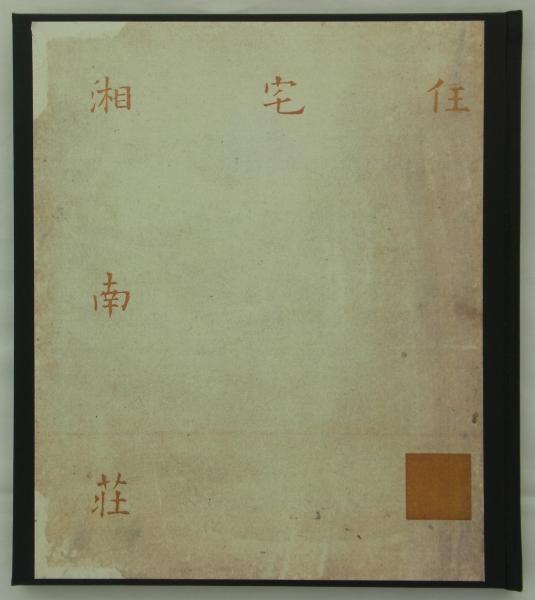 住宅
湘南荘